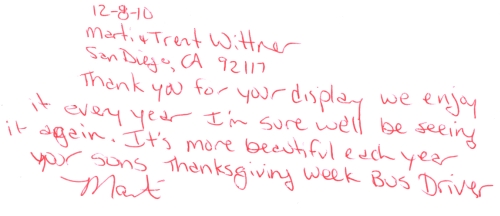 12-8-10
Marti & Trent Wittner
San Diego, CA 92117
Thank you for your display we enjoy
it every year I'm sure we'll be seeing
it again. It's more beautiful each year
your sons Thanksgiving week Bus Driver
Marti